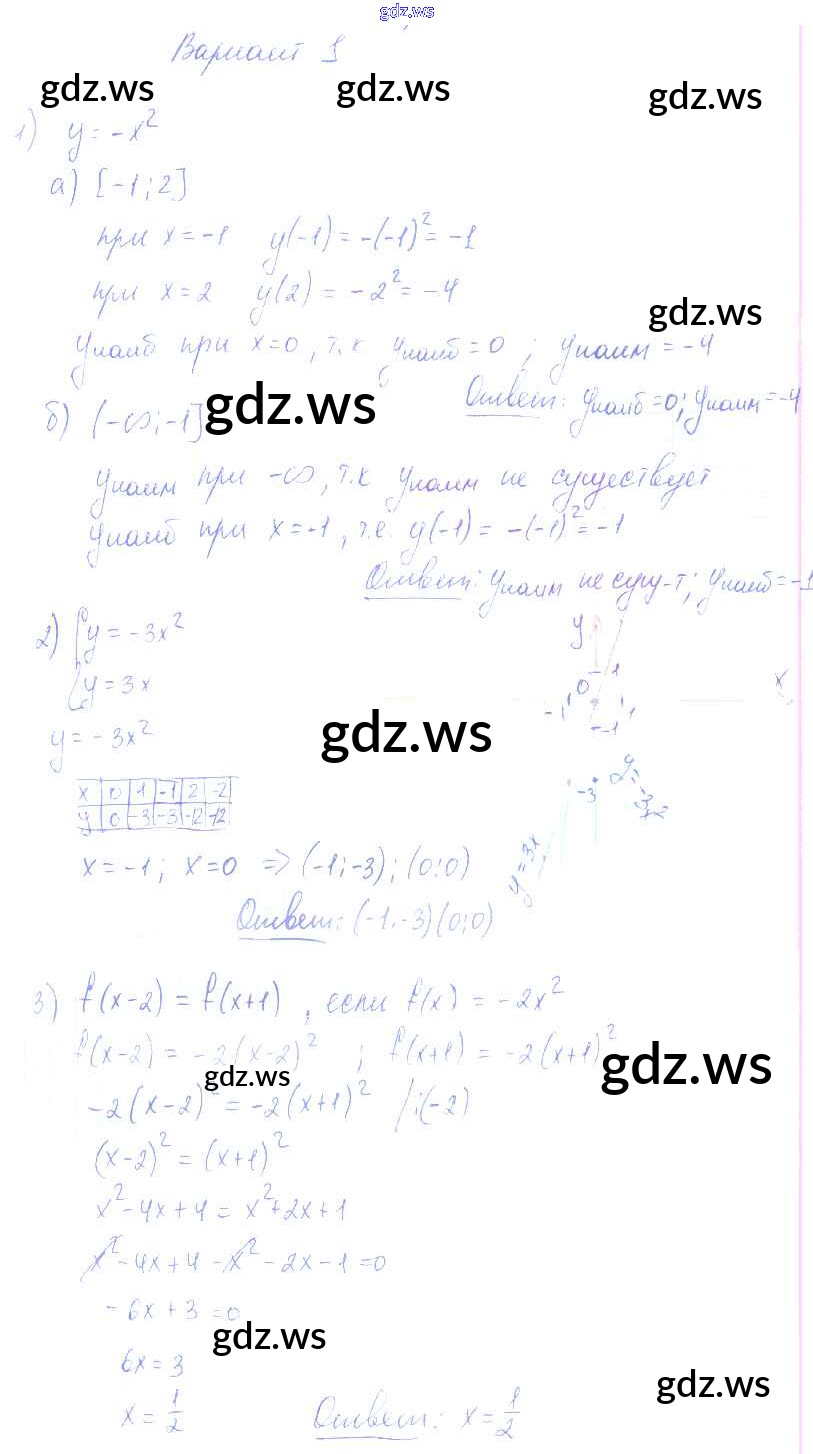 gdz.ws
Вариант 1
gdz.ws gdz.ws gdz.ws
1) y = -x²
а) [-1; 2]
при x = -1 y(-1) = -(-1)² = -1
при x = 2 y(2) = -2² = -4
gdz.ws
yнаиб при x=0, т.к yнаиб = 0 ; yнаим = -4
Ответ: yнаиб = 0; yнаим = -4
б) (-∞; -1] gdz.ws
yнаим при -∞, т.к yнаим не существует
yнаиб при x = -1, т.е. y(-1) = -(-1)² = -1
Ответ: yнаим не сущ-т; yнаиб = -1
2) { y = -3x²
y = 3x
y = -3x²
gdz.ws
y
x
0
1
-1
1
-1
-3
y = 3x
x 0 1 -1 2 -2
y 0 -3 -3 -12 -12
x = -1; x = 0 => (-1; -3); (0; 0)
Ответ: (-1; -3) (0; 0)
3) f(x-2) = f(x+1), если f(x) = -2x²
f(x-2) = -2(x-2)² ; f(x+1) = -2(x+1)²
gdz.ws gdz.ws
-2(x-2)² = -2(x+1)² /:(-2)
(x-2)² = (x+1)²
x² - 4x + 4 = x² + 2x + 1
x² - 4x + 4 - x² - 2x - 1 = 0
-6x + 3 = 0
gdz.ws
6x = 3
gdz.ws
x = 1/2 Ответ: x = 1/2